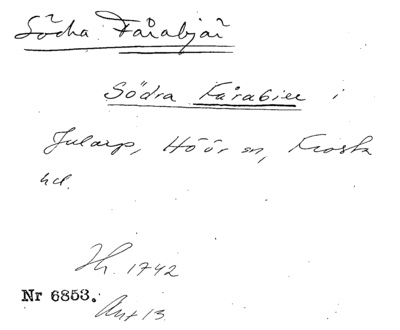 Södra Fårabjär
Södra Fårabier i
Jularp, Höör sn, Frosta
hd.
Jh. 1742
Nr 6853.
Ant 13